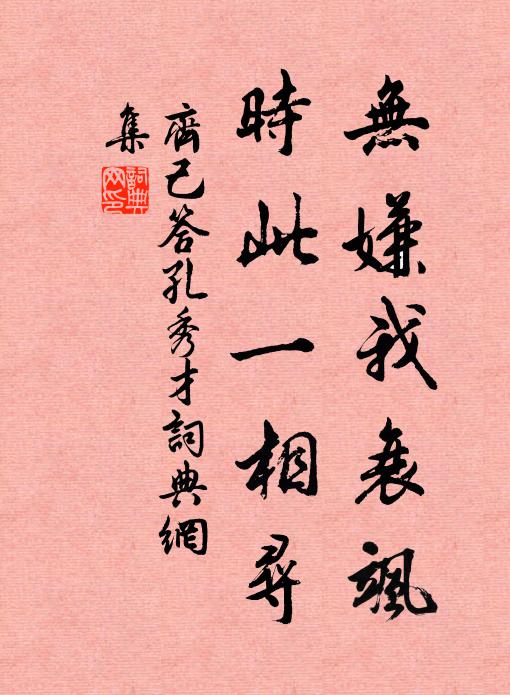 無嫌我衰颯
時此一相尋
齊己答孔秀才詞典網
集
詞典
网印